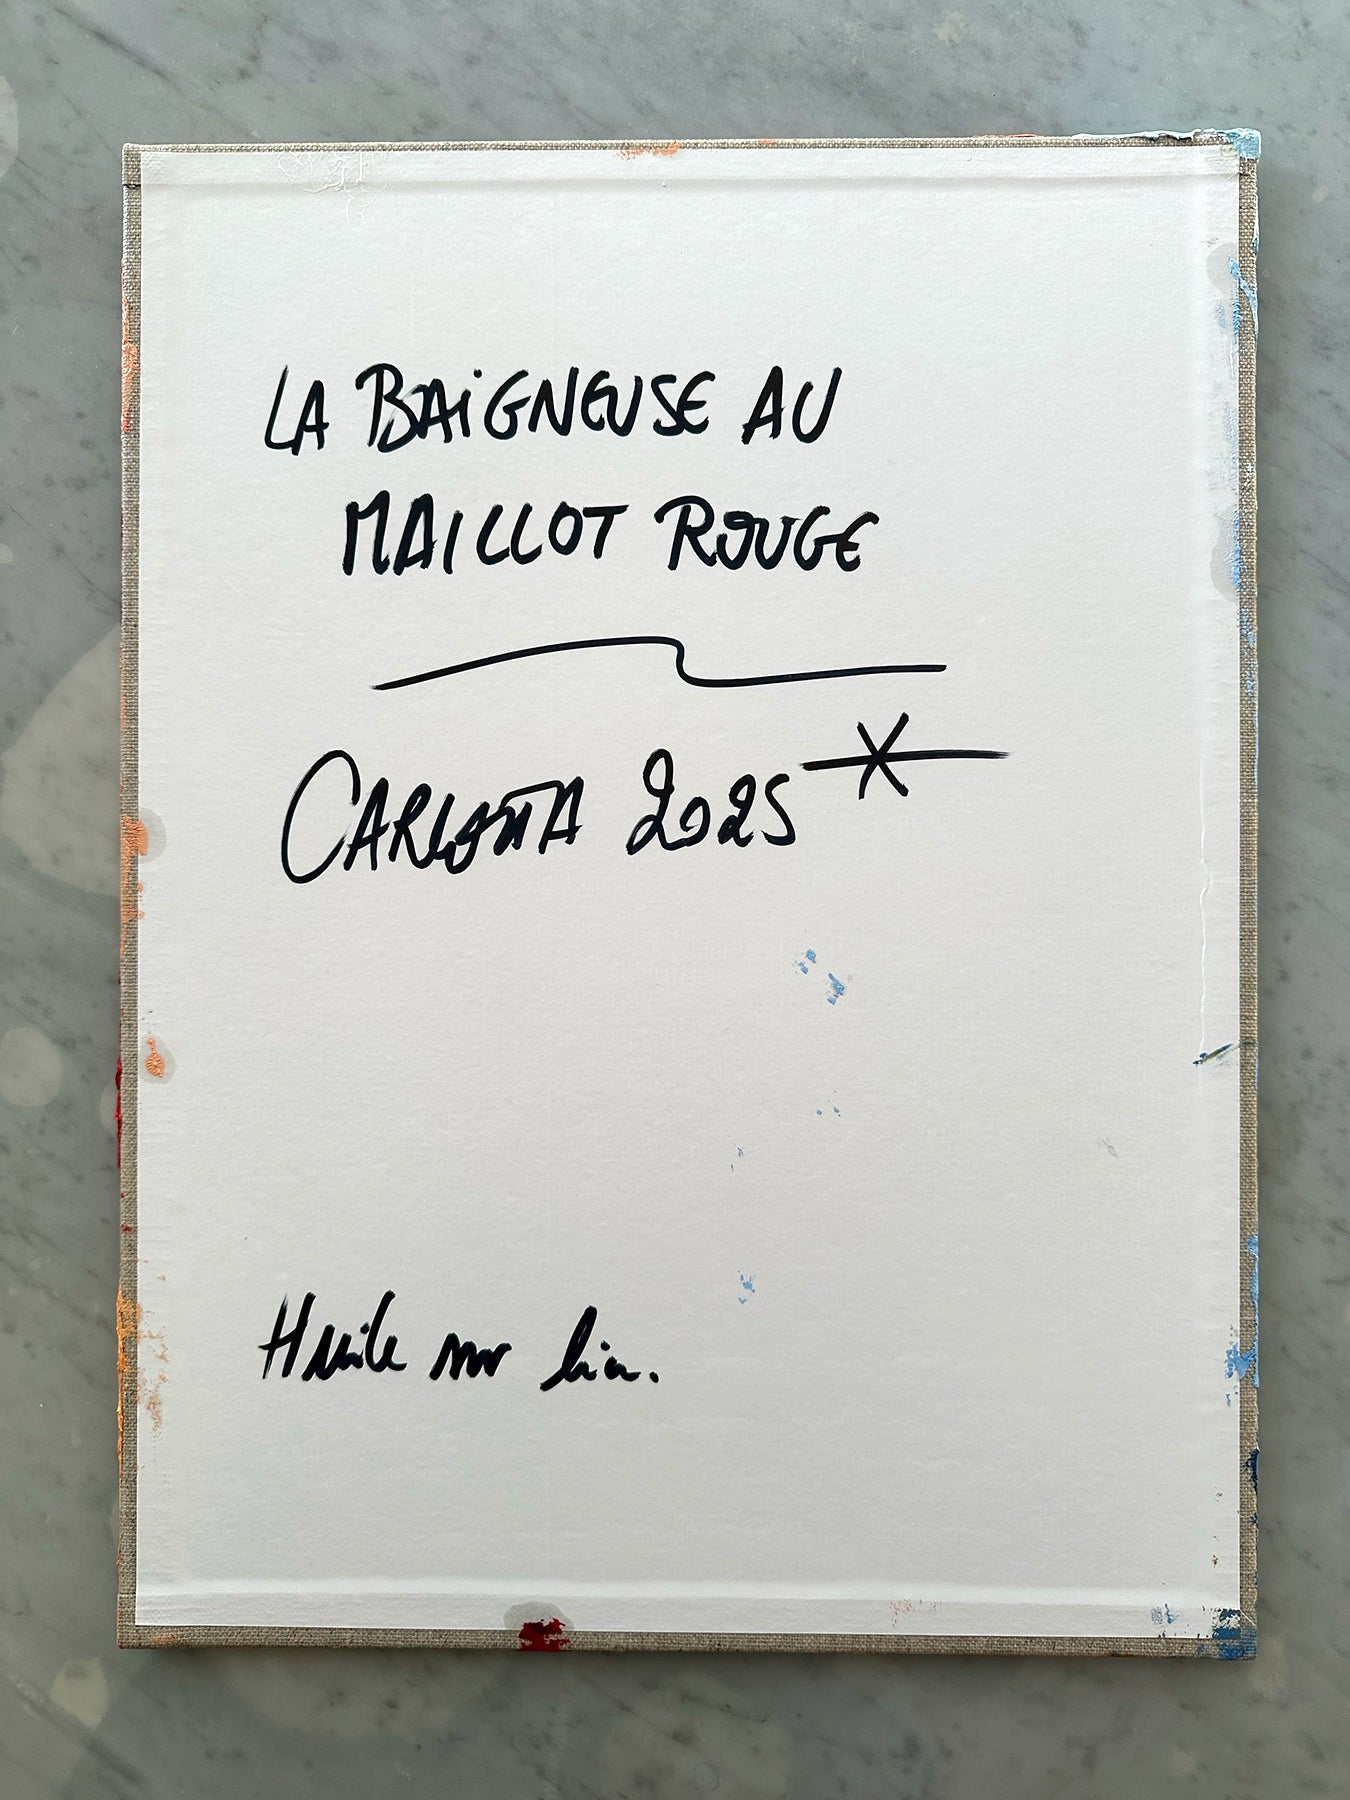 LA BAiGNEUSE AU
MAILLOT ROUGE
CARLOTTA 2025
Huile sur lin.